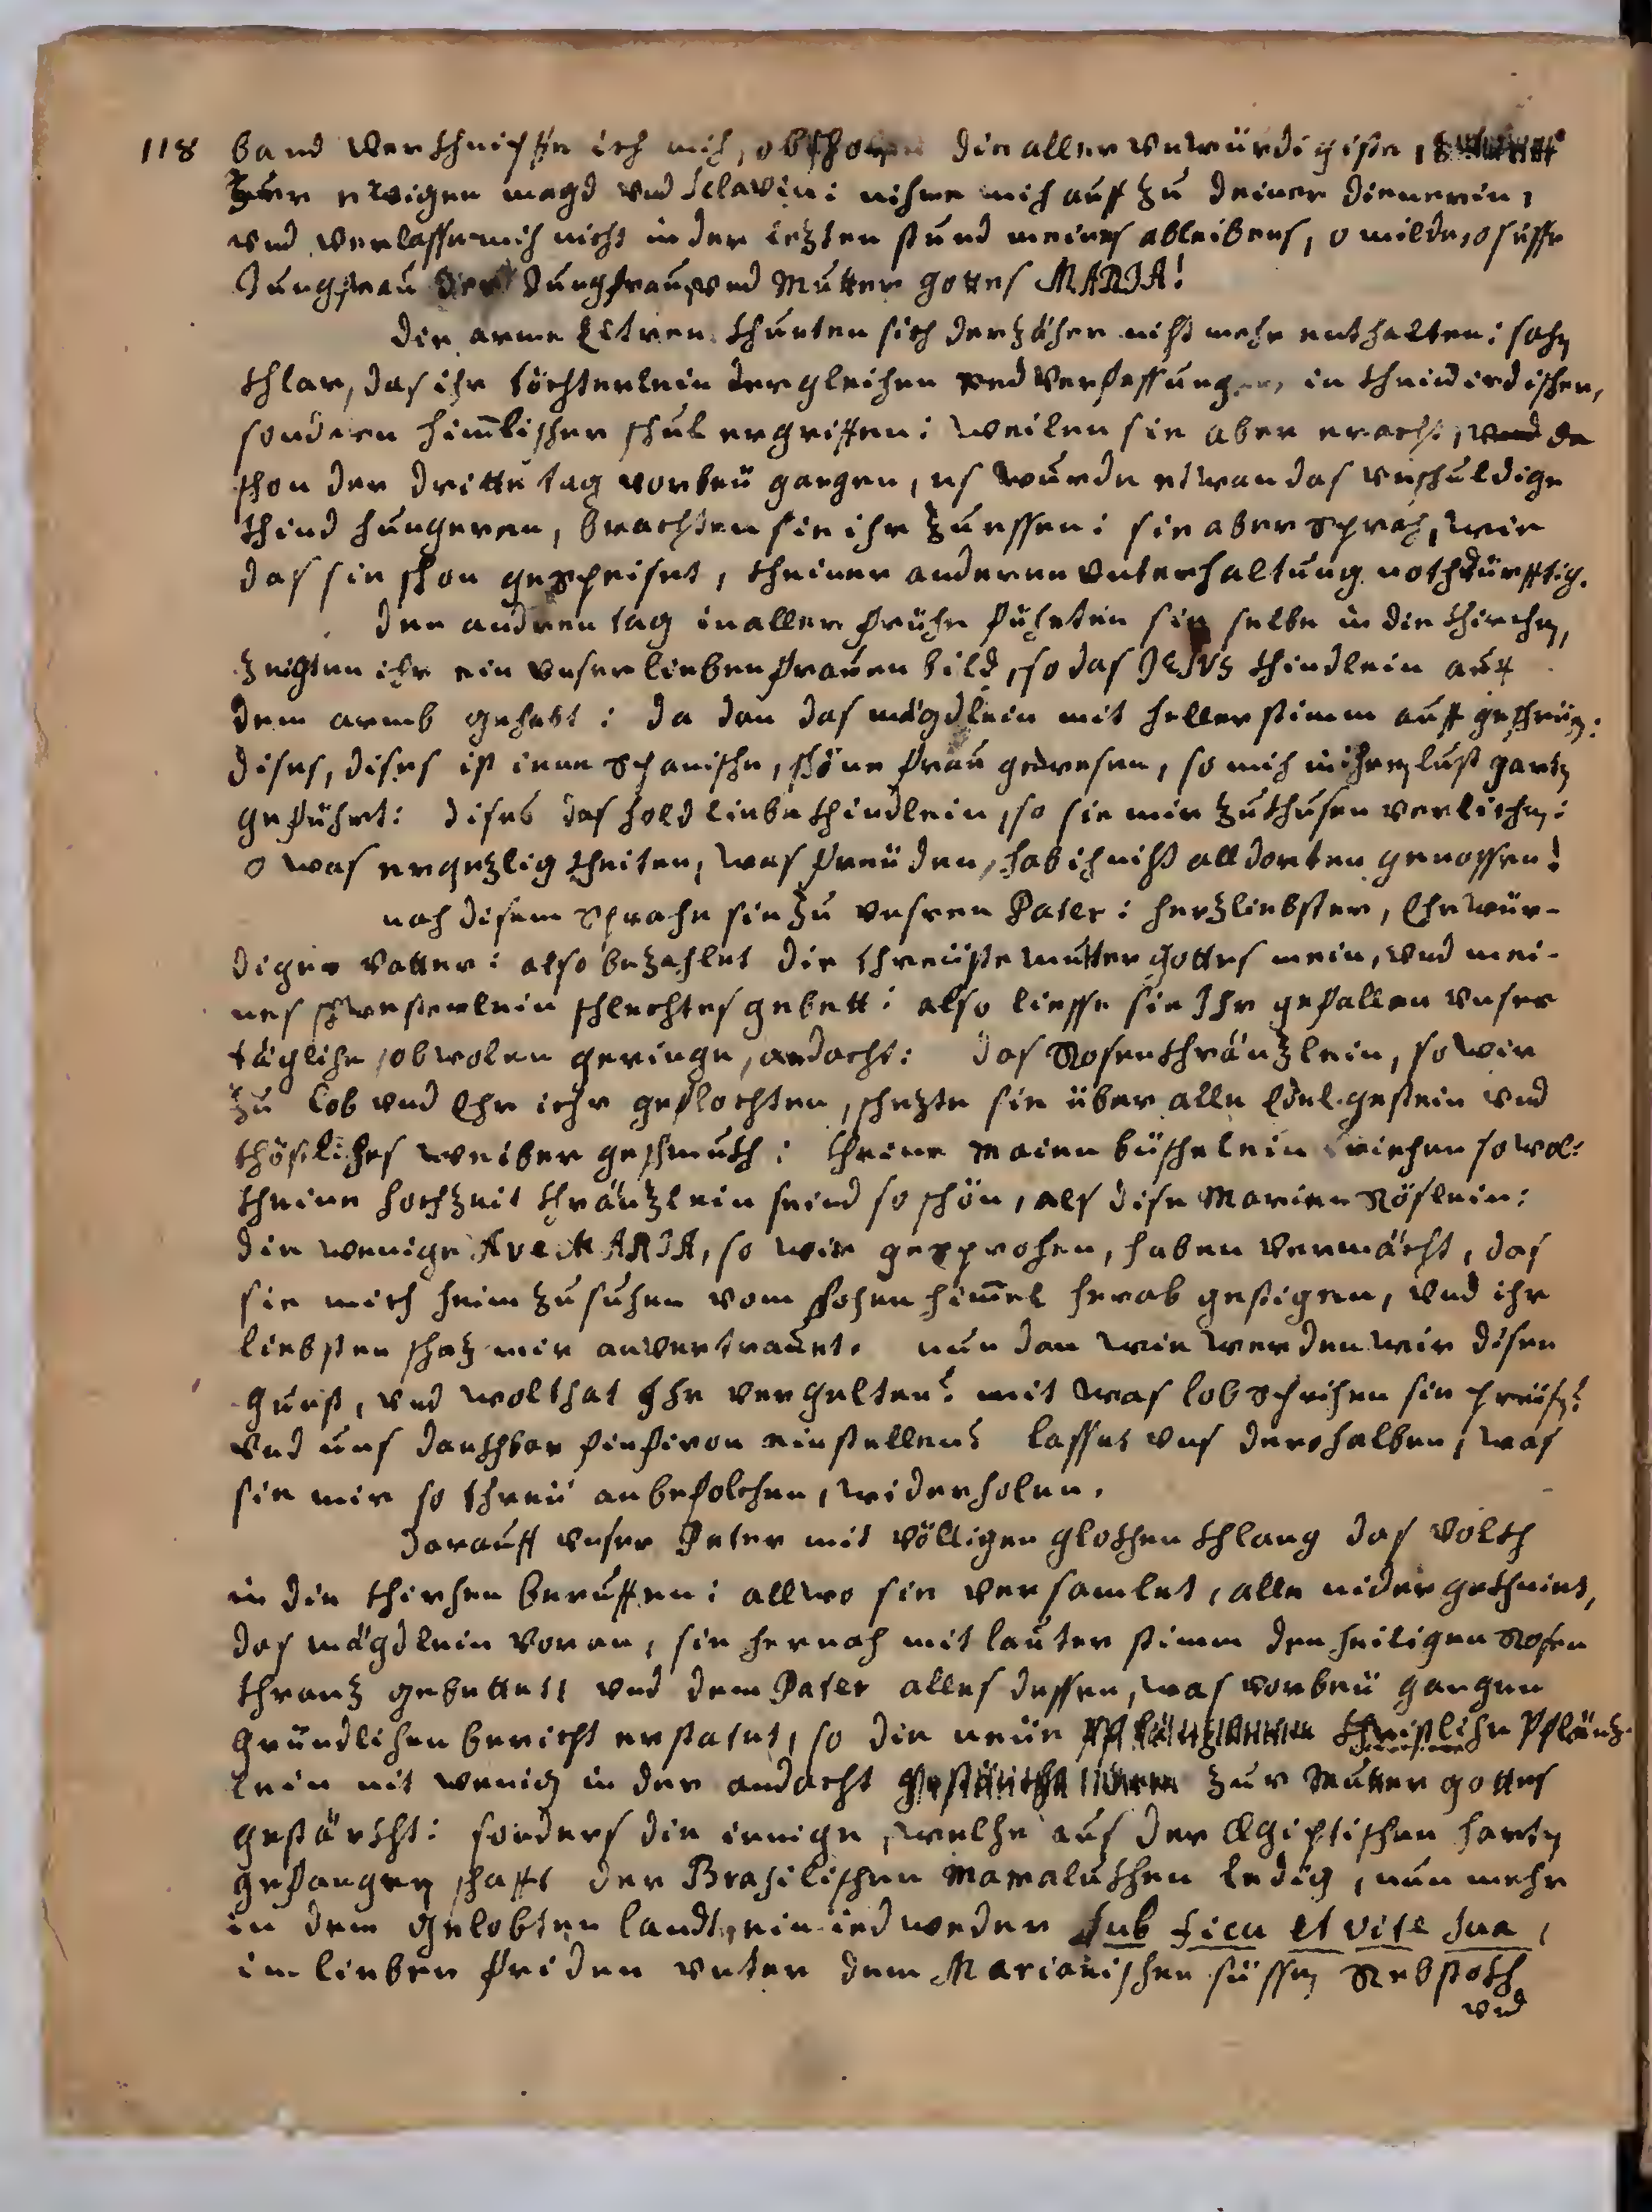 118 band verkhnipffe ich mich, obschon die aller unwürdigiste,
zur ewigen magd vnd Sclavin: nihme mich auff zu deiner dienerin,
vnd verlasse mich nicht in der letzten stund meines ableibens, o milde, o süsse
Jungfrau der Jungfrauen vnd Mutter gottes MARIA!
die arme Eltren khunten sich der zäher nicht mehr enthalten: sahen
khlar, das ihr töchterlein dergleichen red verfassungen, in kheiner irdischen,
sondren him̄lischen schul ergriffen: weilen sie aber eracht, vnd da
schon der dritte tag vorbeÿ gangen, es wurde etwan das vnschuldige
khind hungeren, brachten sie ihr zu essen: sie aber sprach, wie
das sie schon gespeiset, kheiner anderen vnterhaltung nothdürfftig.
den andren tag in aller frühe führten sie selbe in die khirchen,
zeigten ihr ein vnser lieben frauen bild, so das JESUS khindlein auff
dem armb gehabt: da dan das mägdlein mit heller stimm auff geschrÿen:
dises, dises ist iene spanische, schöne frau gewesen, so mich in ihren lust garten
geführt: dises das holdliebe khindlein, so sie mir zu khusen verlichen:
o was ergezligkheiten, was freüden, hab ich nicht alldorten genossen!
nach disem sprache sie zu vnsren Pater: herzliebster, Ehrwür-
diger vatter: also bezahlet die threüiste mutter Gottes mein, vnd mei-
nes schwesterlein schlechtes gebett: also liesse sie Ihr gefallen vnser
tägliche, obwolen geringe, andacht: das Rosenkhränzlein, so wir
zu Lob vnd Ehr ihr geflochten, schezte sie über alle Edelgestein vnd
khöstliches weiber geschmukh: kheine Maien büschelein riechen so wol:
kheine hochzeit khränzlein seind so schön, als dise Marien Röslein:
die wenige Ave MARIA, so wir gesprochen, haben vermöcht, das
sie mich heimzusuchen vom hohen him̄el herab gestigen, vnd ihr
liebsten schaz mir anvertrauet. nun dan wie werden wir disen
gunst, vnd wolthat Ihr vergelten? mit was lobsprichen sie preisen?
vnd uns dankhbar hinfiron einstellen? lasset vns derohalben, was
sie mir so threü anbefolchen, widerholen.
darauff vnser Pater mit völligen glokhen khlang das volkh
in die khirchen beruffen: allwo sie versamlet, alle nidergekhniet,
das mägdlein voran, sie hernach mit lauter stimm den heiligen Rosen
khranz gebettet, vnd dem Pater alles dessen, was vorbeÿ gangen
gründlichen bericht erstatet, so die neüe Christliche Pflänz-
lein nit wenig in der andacht zur Mutter gottes
gestärkht: sonders die ienige, welche aus der Ægiptischen harten
gefangenschafft der Brasilischen Mamalukhen ledig, nun mehr
in dem gelobten landt, ein iedweder sub ficu et vite sua,
im lieben friden vnter dem Marianischen süssen Rebstokh
vnd